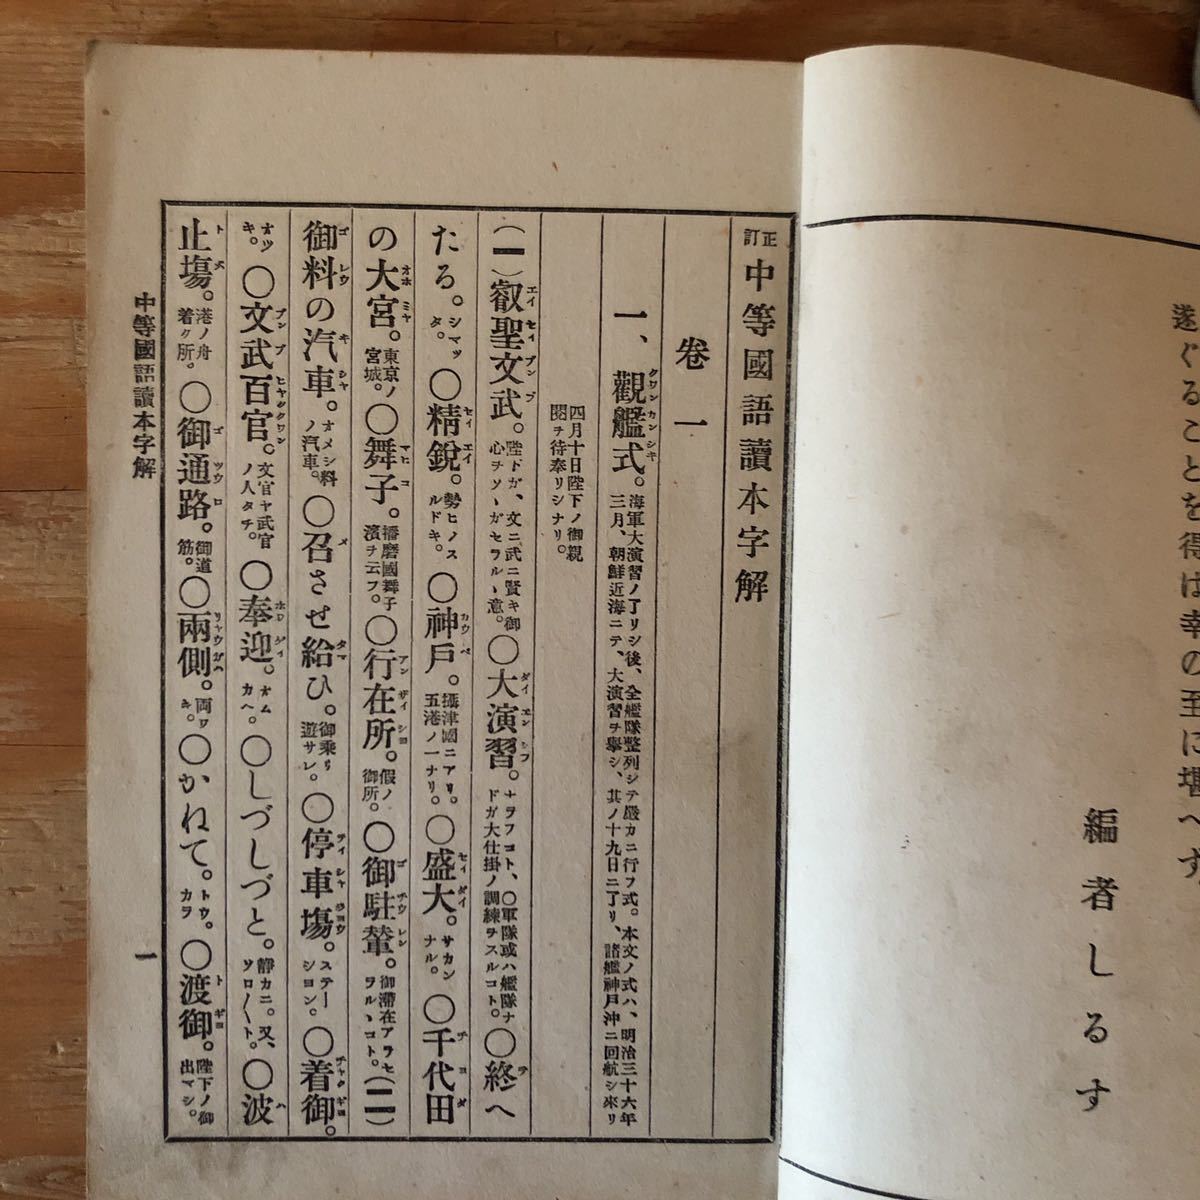 遂ぐることを得ば幸の至に堪へず
編者しるす
訂正 中等國語讀本字解
卷一
一、觀艦式。海軍大演習ノ了リシ後、全艦隊整列シテ嚴カニ行フ式。本文ノ式ハ、明治三十六年三月、朝鮮近海ニテ、大演習ヲ擧シ、其ノ十九日ニ了リ、諸艦神戸沖ニ回航シ來リ
四月十日陛下ノ御親閲ヲ待奉リシナリ。
(一)叡聖文武。陛下ガ、文ニ武ニ賢キ御心ヲソヽガセラルヽ意。〇大演習。ナラフコト、〇軍隊或ハ艦隊ナドガ大仕掛ノ調練ヲスルコト。〇終へ
たる。シマッタ。〇精鋭。勢ヒノスルドキ。〇神戸。攝津國ニアリ。五港ノ一ナリ。〇盛大。サカンナル。〇千代田
の大宮。東京ノ宮城。〇舞子。播磨國舞子濱ヲ云フ。〇行在所。假ノ御所。〇御駐輦。御滯在アラセヲルヽコト。(二)
御料の汽車。オメシ料ノ汽車。〇召させ給ひ。御乘リ遊サレ。〇停車場。ステーション。〇着御。
オツキ。〇文武百官。文官ヤ武官ノ人タチ。〇奉迎。オムカヘ。〇しづしづと。靜カニ。又、ソロ〳〵ト。〇波
止塲。港ノ舟着ク所。〇御通路。御道筋。〇兩側。両ワキ。〇かねて。トウ。カヲ。〇渡御。陛下ノ御出マシ。
中等國語讀本字解
一